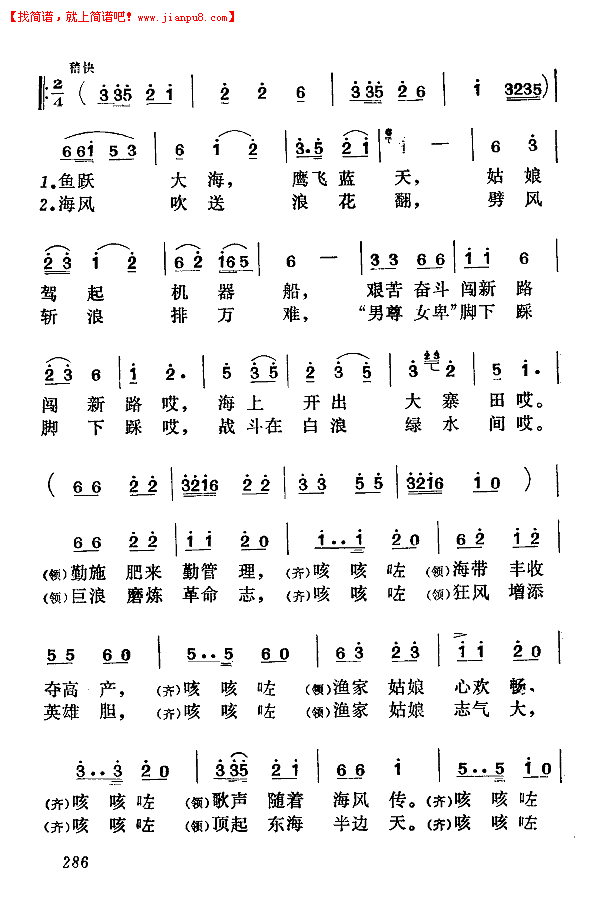 【找简谱，就上简谱吧! www.jianpu8.com】
稍快
2/4 ( 3 35 2 1 | 2 2 6 | 3 35 2 6 | 1 3235 )
661 53 | 6 1 2 | 3.5 21 | 1 — | 6 3
1.鱼跃 大海， 鹰飞蓝 天， 姑娘
2.海风 吹送 浪花 翻， 劈风
23 1 2 | 62 165 | 6 — | 33 66 | 11 6
驾起 机器 船， 艰苦奋斗闯新路
斩浪 排万 难， “男尊女卑”脚下踩
23 6 | 1 2. | 5 35 | 2 35 | 3 2 | 5 1.
闯新路哎，海上 开出 大寨 田哎。
脚下踩哎，战斗在白浪 绿水 间哎。
( 66 22 | 3216 22 | 35 35 | 3216 | 10 )
66 22 | 11 20 | 1..1 20 | 62 12
(领)勤施 肥来 勤管 理，(齐)咳 咳咗 (领)海带 丰收
(领)巨浪 磨炼 革命 志，(齐)咳 咳咗 (领)狂风 增添
55 60 | 5..5 60 | 63 23 | 11 20
夺高 产，(齐)咳 咳 咗 (领)渔家 姑娘 心欢 畅、
英雄 胆，(齐)咳 咳 咗 (领)渔家 姑娘 志气 大，
3..3 20 | 335 21 | 66 1 | 5..5 10
(齐)咳 咳咗 (领)歌声 随着 海风 传。(齐)咳 咳咗
(齐)咳 咳咗 (领)顶起 东海 半边 天。(齐)咳 咳咗
286